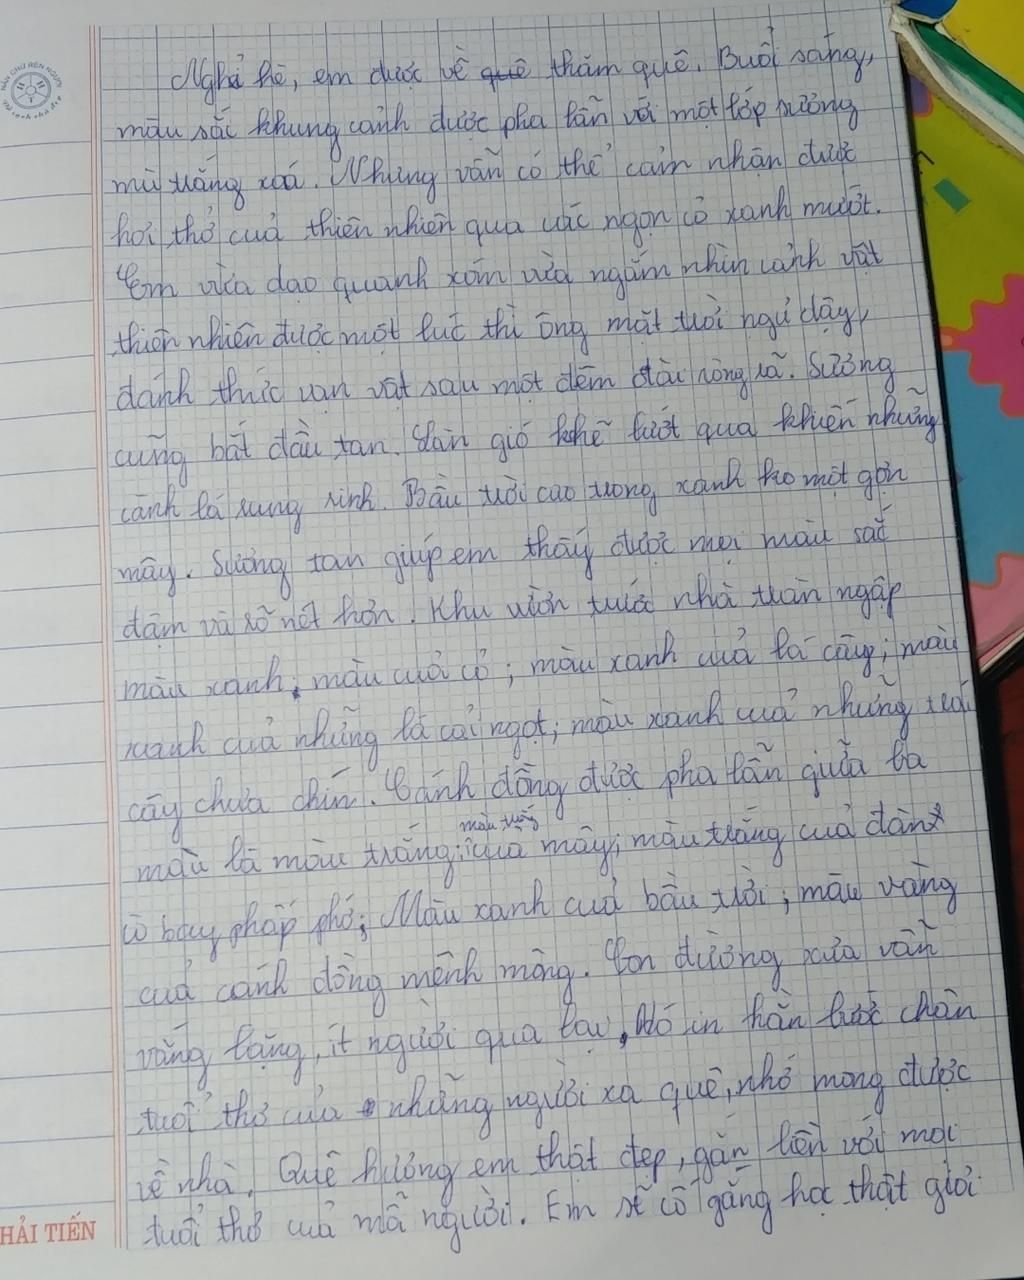 Nghỉ hè, em được về quê thăm quê. Buổi sáng,
màu sắc khung cảnh được pha lẫn với một lớp sương
mù trắng xoá. Nhưng vẫn có thể cảm nhận được
hơi thở của thiên nhiên qua các ngọn cỏ xanh mướt.
Em vừa dạo quanh xóm vừa ngắm nhìn cảnh vật
thiên nhiên được một lúc thì ông mặt trời ngủ dậy,
đánh thức vạn vật sau một đêm dài ròng rã. Sương
cũng bắt đầu tan. Làn gió khẽ lướt qua khiến những
cành lá rung rinh. Bầu trời cao trong xanh ko một gợn
mây. Sương tan giúp em thấy được mọi màu sắc
đậm và rõ nét hơn. Khu vườn trước nhà tràn ngập
màu xanh, màu của cỏ; màu xanh của lá cây; màu
xanh của những lá cải ngọt; màu xanh của những trái
cây chưa chín. Cánh đồng được pha lẫn giữa ba
màu là màu trắng; màu trắng của mây; màu trắng của đàn
cò bay phấp phớ; Màu xanh của bầu trời; màu vàng
của cánh đồng mênh mông. Con đường xưa vẫn
vắng lặng, ít người qua lại, Nó in hằn bước chân
tuổi thơ của những người xa quê, nhớ mong được
về nhà. Quê hương em thật đẹp, gắn liền với mọi
tuổi thơ của mỗi người. Em sẽ cố gắng học thật giỏi
HẢI TIẾN